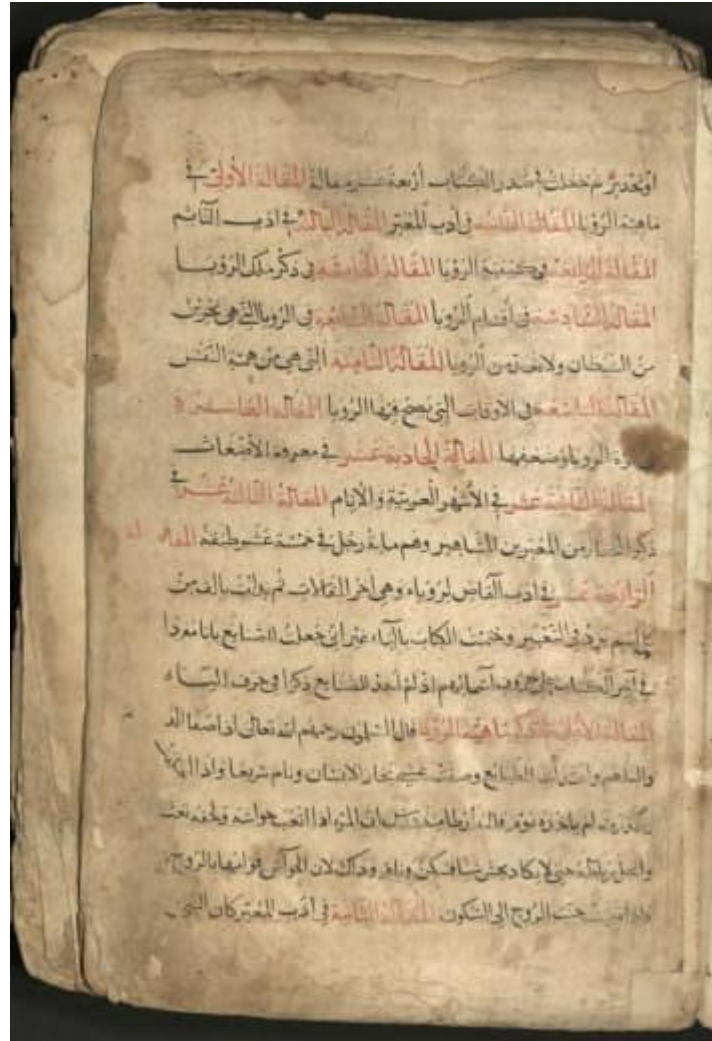 او تحذير ثم جعلت في صدر الكتاب أربعة عشر مقالة المقالة الأولى في
ماهية الرؤيا المقالة الثانية في أدب المعبر المقالة الثالثة في ادب النائم
المقالة الرابعة في كيفية الرؤيا المقالة الخامسة في ذكر ملك الرؤيا
المقالة السادسة في أقسام الرؤيا المقالة السابعة في الرؤيا التي هي تحزين
من الشيطان من الرؤيا المقالة الثامنة التي هي من همة النفس
المقالة التاسعة في الاوقات التي تصح فيها الرؤيا المقالة العاشرة
الرويا وضعفها المقالة الحادية عشر في معرفة الأضغاث
المقالة الثانية عشر في الأشهر العربية والأيام المقالة الثالثة عشر في
ذكر من المعبرين المشاهير وهم مائة رجل في خمسة عشر طبقة
الرابعة عشر في ادب القاص لرؤياه وهي آخر المقالات ثم بدأت بألف من
في التعبير وختمت الكتاب بالياء غير أني جعلت للصنايع بابا مفردا
في آخر الكتاب حروف أسمائهم اذ لم أجد للصنايع ذكرا في حرف الياء
المقالة الأولى ماهية الرؤيا قال المسلمون رحمهم الله تعالى اذا صفا الدم
الطبايع بخار الانسان ونام سريعا واذا
لم ياخذه نوم قال أرطاميدورس ان المرء اذا اتعب حواسه
حتى لا يكاد يحس ونام وذلك لان الحواس قوامها بالروح
الروح الى السكون المقالة الثانية في أدب المعبر كان النبي